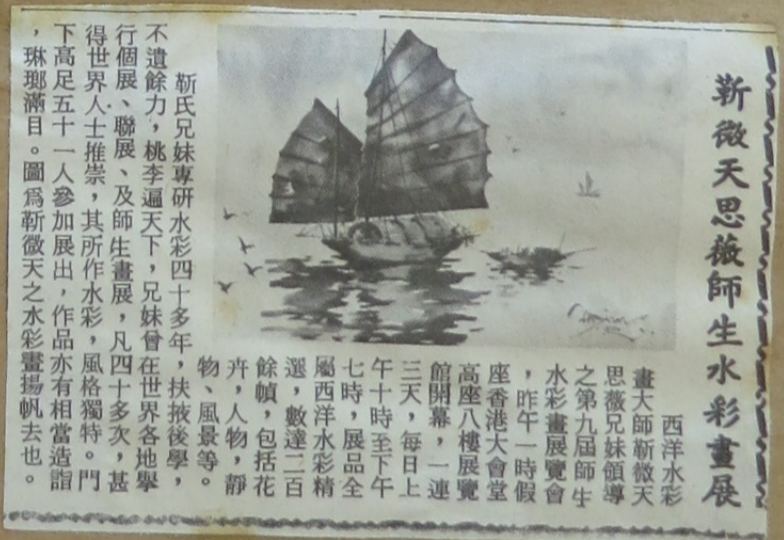 靳微天思薇師生水彩畫展
西洋水彩
畫大師靳微天
思薇兄妹領導
之第九屆師生
水彩畫展覽會
，昨午一時假
座香港大會堂
高座八樓展覽
館開幕，一連
三天，每日上
午十時至下午
七時，展品全
屬西洋水彩精
選，數達二百
餘幀，包括花
卉，人物，靜
物、風景等。
靳氏兄妹專研水彩四十多年，扶掖後學，
不遺餘力，桃李遍天下，兄妹曾在世界各地舉
行個展、聯展、及師生畫展，凡四十多次，甚
得世界人士推崇，其所作水彩，風格獨特。門
下高足五十一人參加展出，作品亦有相當造詣
，琳瑯滿目。圖爲靳微天之水彩畫揚帆去也。